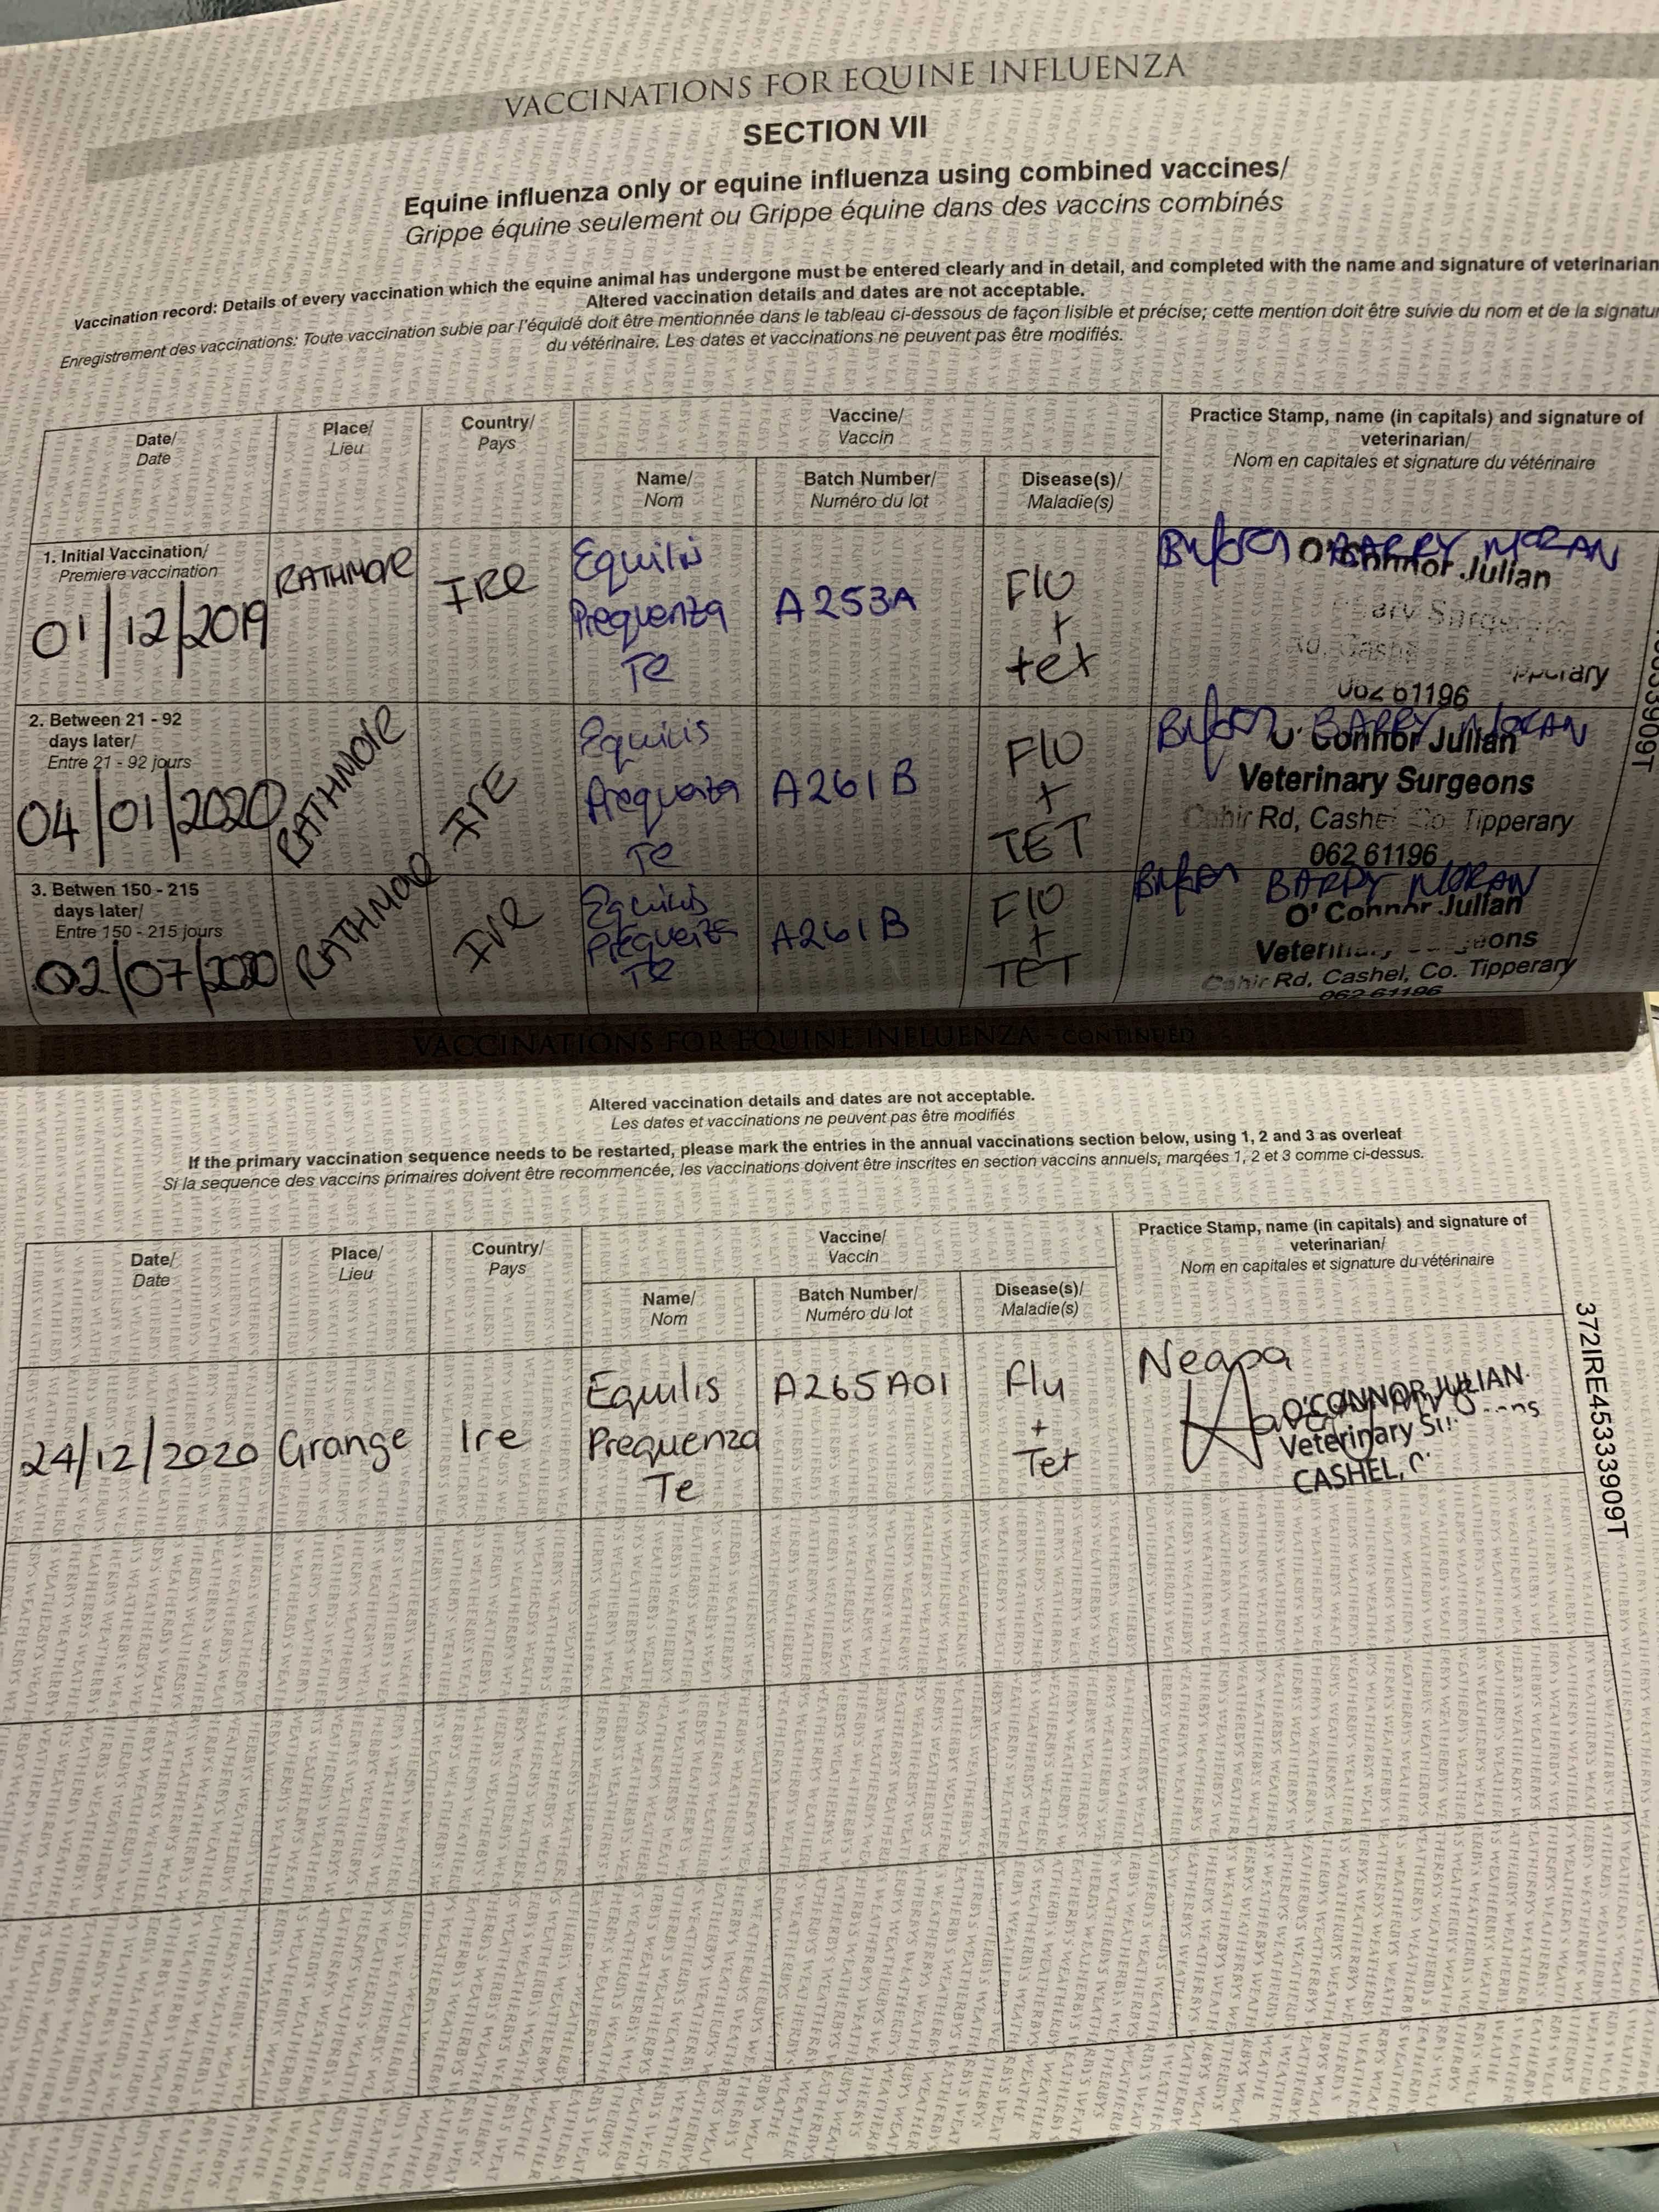 VACCINATIONS FOR EQUINE INFLUENZA
SECTION VII
Equine influenza only or equine influenza using combined vaccines/
Grippe équine seulement ou Grippe équine dans des vaccins combinés
Vaccination record: Details of every vaccination which the equine animal has undergone must be entered clearly and in detail, and completed with the name and signature of veterinarian
Altered vaccination details and dates are not acceptable.
Enregistrement des vaccinations: Toute vaccination subie par l'équidé doit être mentionnée dans le tableau ci-dessous de façon lisible et précise; cette mention doit être suivie du nom et de la signatu
du vétérinaire. Les dates et vaccinations ne peuvent pas être modifiés.
Date/
Date
Place/
Lieu
Country/
Pays
Vaccine/
Vaccin
Name/
Nom
Batch Number/
Numéro du lot
Disease(s)/
Maladie(s)
Practice Stamp, name (in capitals) and signature of
veterinarian/
Nom en capitales et signature du vétérinaire
1. Initial Vaccination/
Premiere vaccination
01/12/2019
RATHMORE
IRE
Equilis
Prequenza
Te
A253A
FlU
+
tet
BARRY MORAN
O'Connor Julian
062 61196
2. Between 21 - 92
days later/
Entre 21 - 92 jours
04/01/2020
RATHMORE
IrE
Equilis
Prequenza
Te
A261B
FlU
+
TET
BARRY MORAN
O' Connor Julian
Veterinary Surgeons
Cahir Rd, Cashel Co Tipperary
062 61196
3. Betwen 150 - 215
days later/
Entre 150 - 215 jours
02/07/2020
RATHMORE
Ire
Equilis
Prequenza
Te
A261B
FlU
+
TET
BARRY MORAN
O' Connor Julian
Cahir Rd, Cashel, Co. Tipperary
062 61196
VACCINATIONS FOR EQUINE INFLUENZA - CONTINUED
Altered vaccination details and dates are not acceptable.
Les dates et vaccinations ne peuvent pas être modifiés
If the primary vaccination sequence needs to be restarted, please mark the entries in the annual vaccinations section below, using 1, 2 and 3 as overleaf
Si la sequence des vaccins primaires doivent être recommencée, les vaccinations doivent être inscrites en section vaccins annuels, marqées 1, 2 et 3 comme ci-dessus.
Date/
Date
Place/
Lieu
Country/
Pays
Vaccine/
Vaccin
Name/
Nom
Batch Number/
Numéro du lot
Disease(s)/
Maladie(s)
Practice Stamp, name (in capitals) and signature of
veterinarian/
Nom en capitales et signature du vétérinaire
24/12/2020
Grange
Ire
Equilis
Prequenza
Te
A265A01
Flu
+
Tet
O'CONNOR JULIAN
Veterinary
CASHEL,
372IRE45333909T